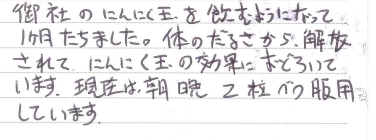 御社のにんにく玉を飲むようになって
1ヶ月たちました。体のだるさから解放
されて、にんにく玉の効果におどろいて
います。現在は朝晩2粒づつ服用
しています。